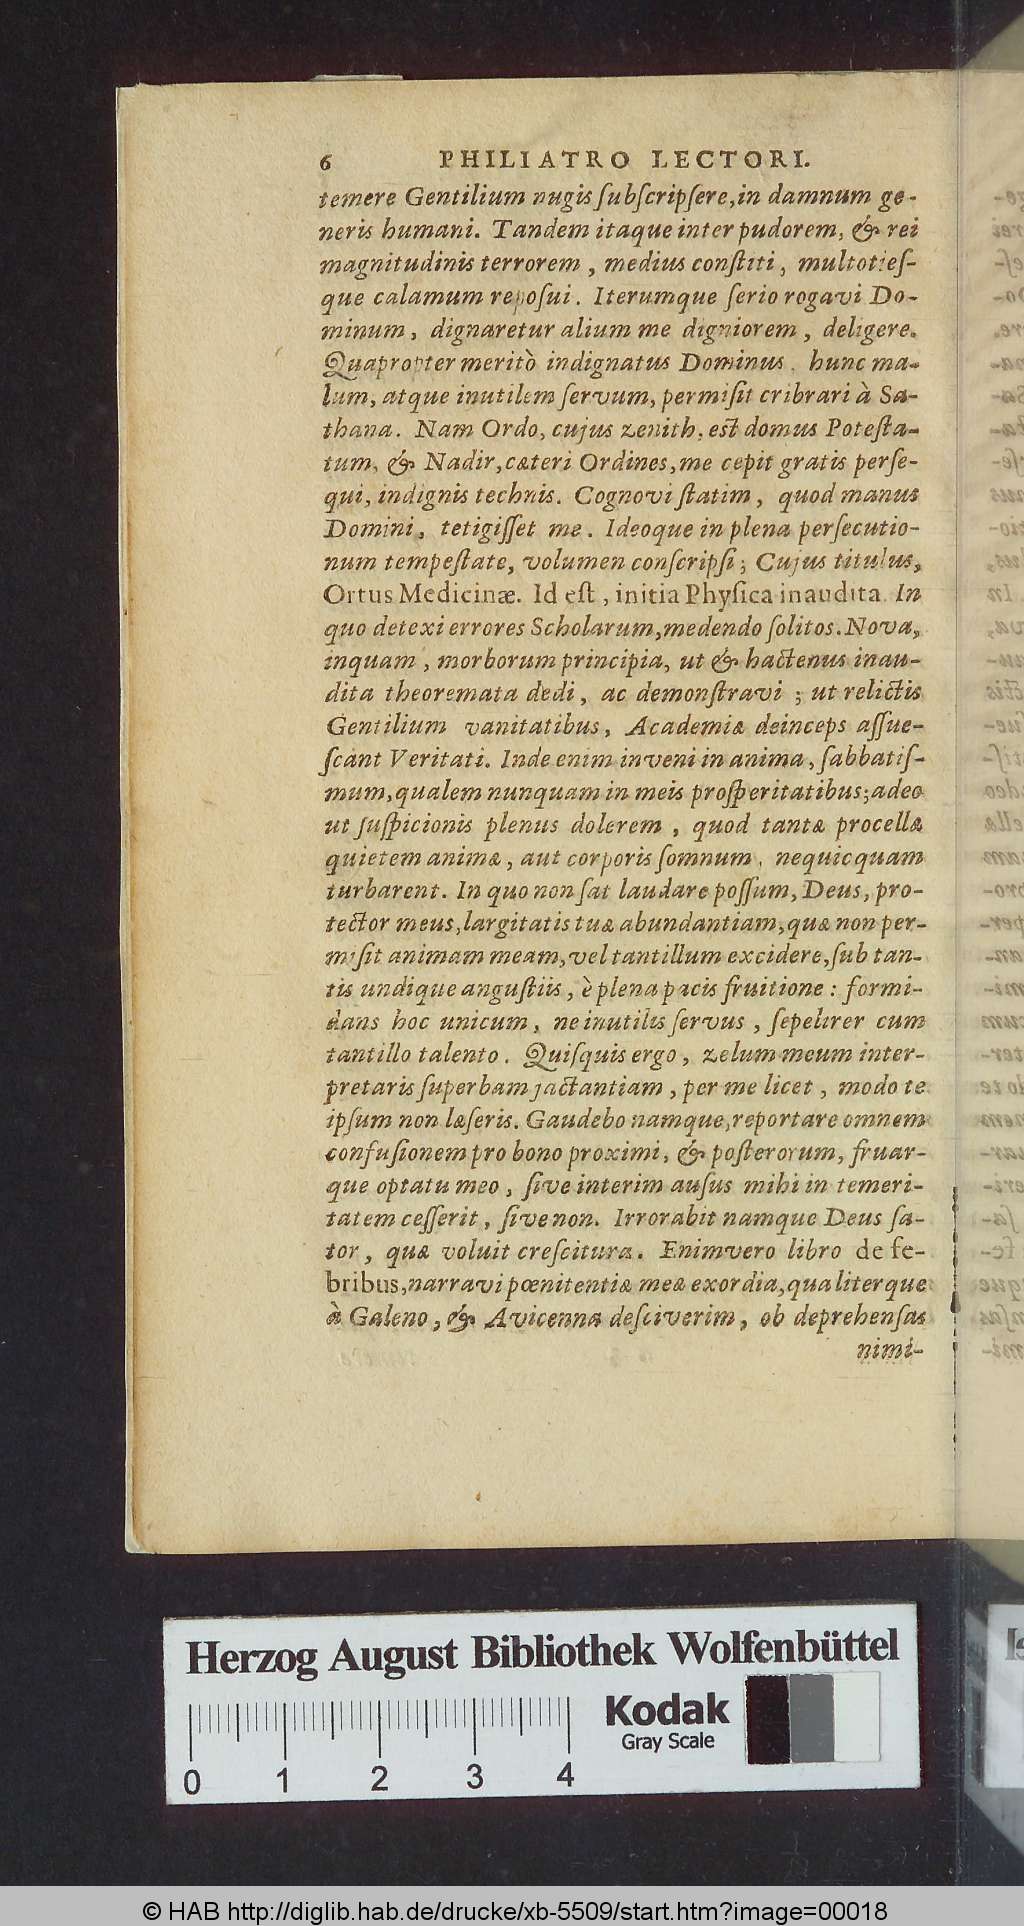 6 PHILIATRO LECTORI.
temere Gentilium nugis ſubſcripſere, in damnum ge-
neris humani. Tandem itaque inter pudorem, & rei
magnitudinis terrorem, medius conſtiti, multotieſ-
que calamum repoſui. Iterumque ſerio rogavi Do-
minum, dignaretur alium me digniorem, deligere.
Quapropter meritò indignatus Dominus, hunc ma-
lum, atque inutilem ſervum, permiſit cribrari à Sa-
thana. Nam Ordo, cujus zenith, eſt domus Poteſta-
tum, & Nadir, cæteri Ordines, me cepit gratis perſe-
qui, indignis technis. Cognovi ſtatim, quod manus
Domini, tetigiſſet me. Ideoque in plena perſecutio-
num tempeſtate, volumen conſcripſi; Cujus titulus,
Ortus Medicinæ. Id eſt, initia Phyſica inaudita. In
quo detexi errores Scholarum, medendo ſolitos. Nova,
inquam, morborum principia, ut & hactenus inau-
dita theoremata dedi, ac demonſtravi; ut relictis
Gentilium vanitatibus, Academiæ deinceps aſſue-
ſcant Veritati. Inde enim inveni in anima, ſabbatiſ-
mum, qualem nunquam in meis proſperitatibus; adeo
ut ſuſpicionis plenus dolerem, quod tantæ procellæ
quietem animæ, aut corporis ſomnum, nequicquam
turbarent. In quo non ſat laudare poſſum, Deus, pro-
tector meus, largitatis tuæ abundantiam, quæ non per-
miſit animam meam, vel tantillum excidere, ſub tan-
tis undique anguſtiis, è plena pacis fruitione: formi-
dans hoc unicum, ne inutilis ſervus, ſepelirer cum
tantillo talento. Quiſquis ergo, zelum meum inter-
pretaris ſuperbam jactantiam, per me licet, modo te
ipſum non læſeris. Gaudebo namque, reportare omnem
confuſionem pro bono proximi, & poſterorum, fruar-
que optatu meo, ſive interim auſus mihi in temeri-
tatem ceſſerit, ſive non. Irrorabit namque Deus ſa-
tor, quæ voluit creſcitura. Enimvero libro de fe-
bribus, narravi pœnitentiæ meæ exordia, qualiterque
à Galeno, & Avicenna deſciverim, ob deprehenſas
nimi-
Herzog August Bibliothek Wolfenbüttel
Kodak
Gray Scale
0 1 2 3 4
© HAB http://diglib.hab.de/drucke/xb-5509/start.htm?image=00018